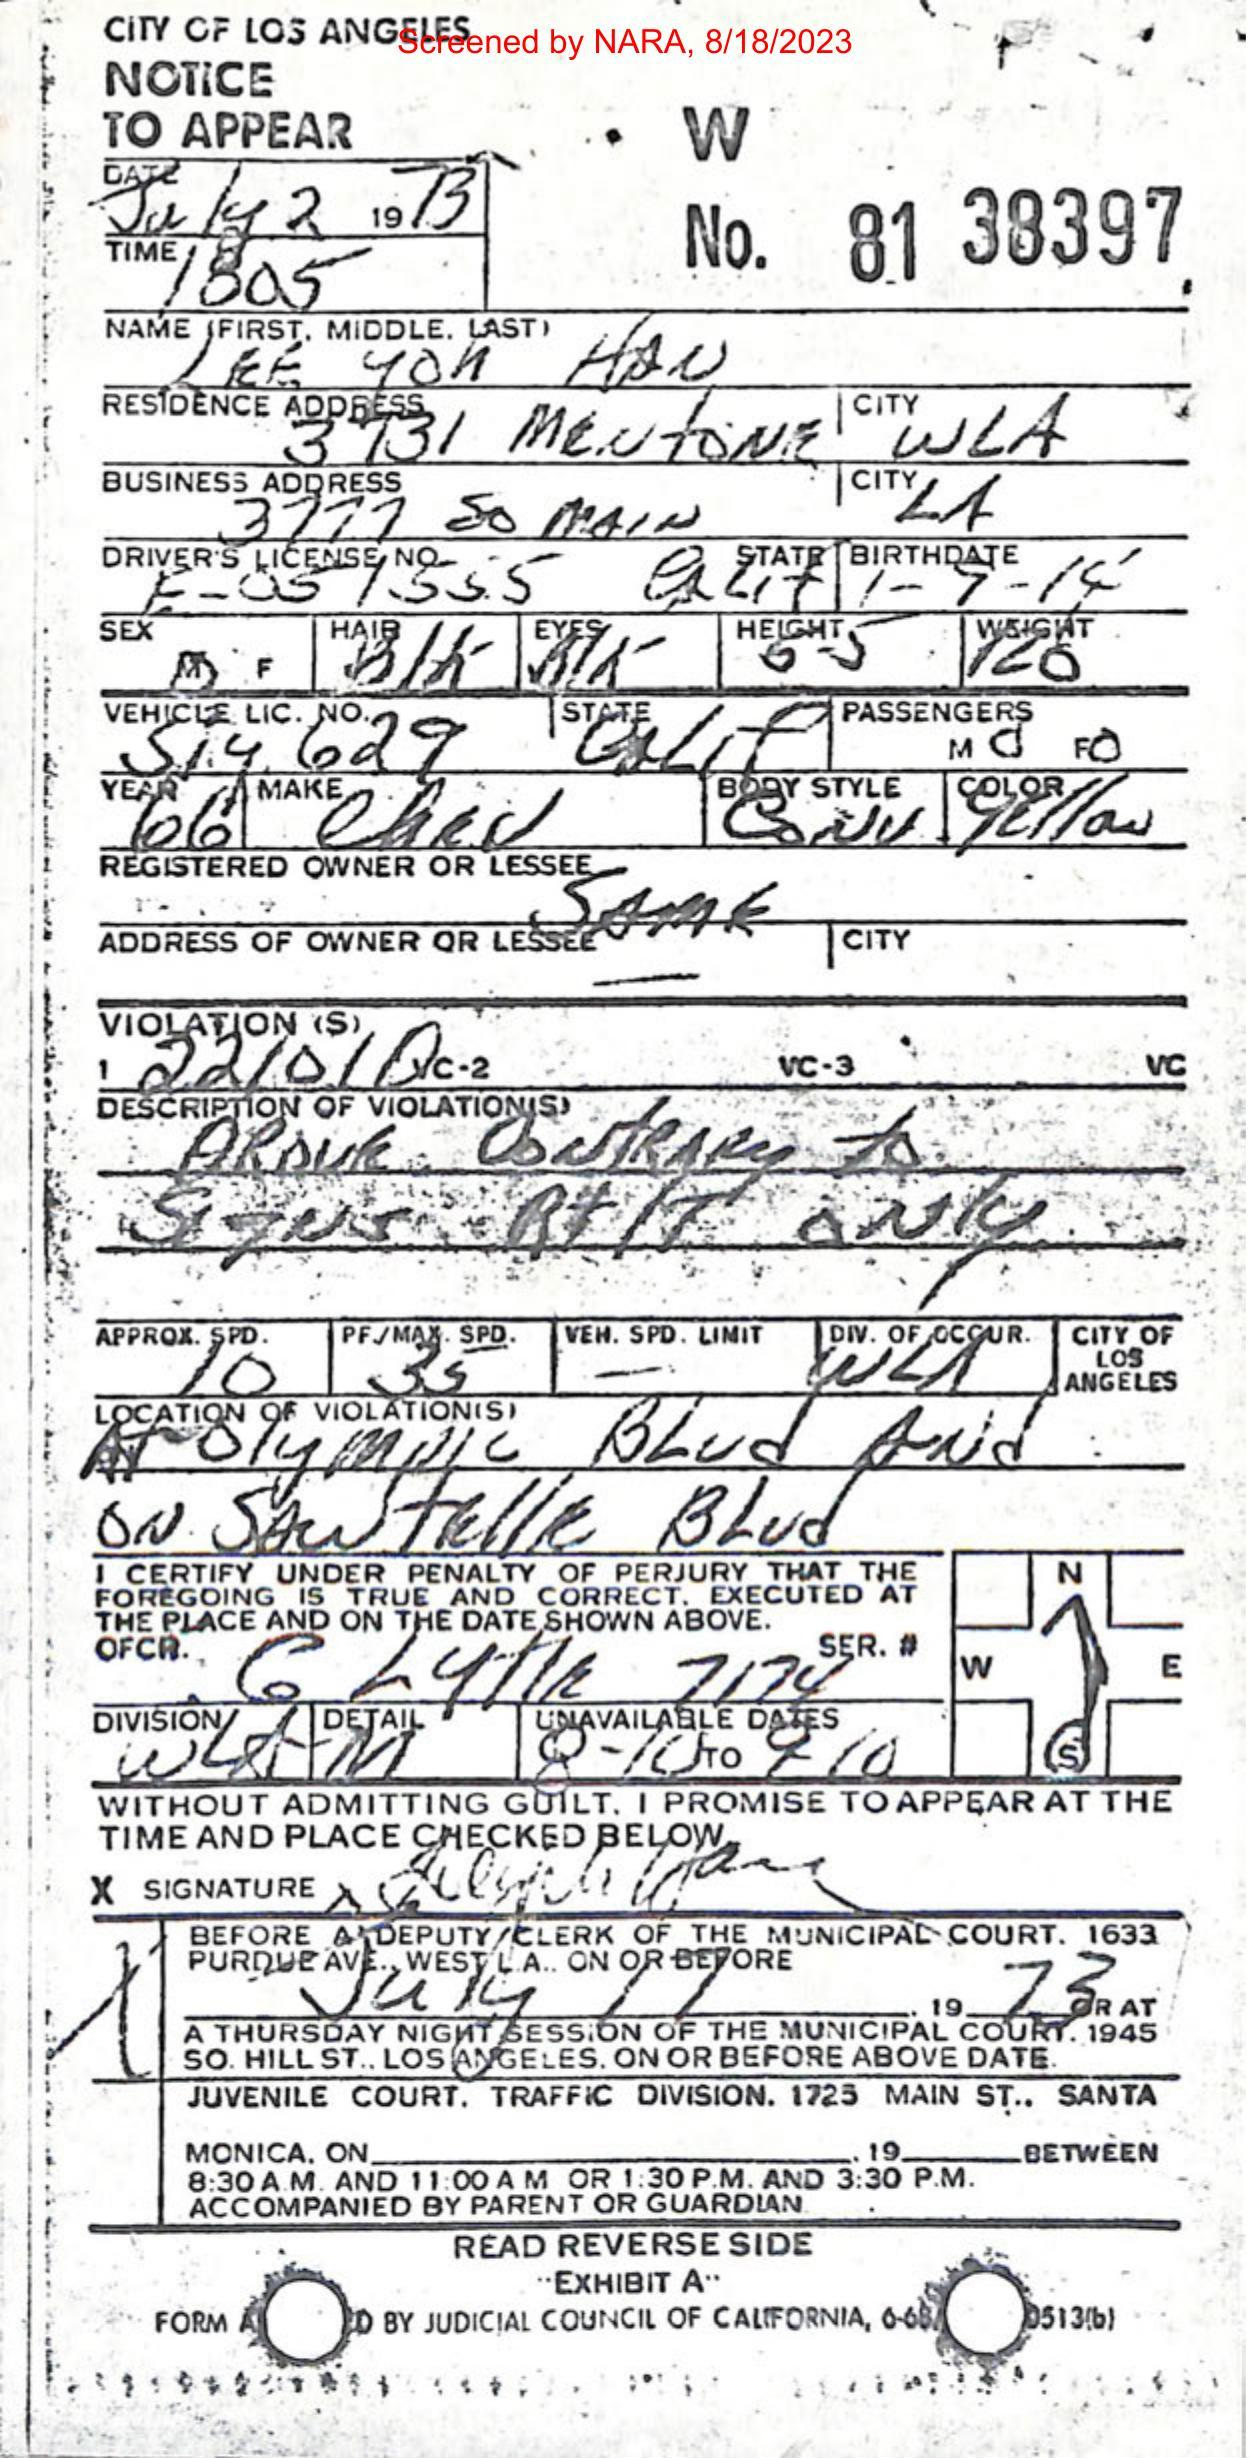 CITY OF LOS ANGELES
Screened by NARA, 8/18/2023
NOTICE
TO APPEAR
W
No. 81 38397
DATE
July 2 1973
TIME
1805
NAME (FIRST, MIDDLE, LAST)
LEE YON HAN
RESIDENCE ADDRESS CITY
3731 MENTONE WLA
BUSINESS ADDRESS CITY
3777 SO MAIN LA
DRIVER'S LICENSE NO. STATE BIRTHDATE
E-051555 CALIF 1-7-14
SEX HAIR EYES HEIGHT WEIGHT
M F Blk Blk 5-5 120
VEHICLE LIC. NO. STATE PASSENGERS
SIY 629 CALIF M O F O
YEAR MAKE BODY STYLE COLOR
66 Chev Conv Yellow
REGISTERED OWNER OR LESSEE
SAME
ADDRESS OF OWNER OR LESSEE CITY
—
VIOLATION (S)
1 22101D VC-2 VC-3 VC
DESCRIPTION OF VIOLATION(S)
DROVE Contrary to
Signs Rt/T only
APPROX. SPD. PF./MAX. SPD. VEH. SPD. LIMIT DIV. OF OCCUR. CITY OF LOS ANGELES
10 35 — WLA
LOCATION OF VIOLATION(S)
At Olympic BLvd And
ON SAWtelle BLvd
I CERTIFY UNDER PENALTY OF PERJURY THAT THE
FOREGOING IS TRUE AND CORRECT. EXECUTED AT
THE PLACE AND ON THE DATE SHOWN ABOVE.
OFCR. G Lytle 7174 SER. #
N
W E
S
DIVISION DETAIL UNAVAILABLE DATES
WLA M 8-10 TO 9-10
WITHOUT ADMITTING GUILT, I PROMISE TO APPEAR AT THE
TIME AND PLACE CHECKED BELOW.
X SIGNATURE X
X
BEFORE A DEPUTY CLERK OF THE MUNICIPAL COURT. 1633
PURDUE AVE., WEST L.A.. ON OR BEFORE
July 17 . 19 73 OR AT
A THURSDAY NIGHT SESSION OF THE MUNICIPAL COURT. 1945
SO. HILL ST., LOS ANGELES. ON OR BEFORE ABOVE DATE.
JUVENILE COURT. TRAFFIC DIVISION. 1725 MAIN ST., SANTA
MONICA. ON . 19 BETWEEN
8:30 A.M. AND 11:00 A M OR 1:30 P.M. AND 3:30 P.M.
ACCOMPANIED BY PARENT OR GUARDIAN.
READ REVERSE SIDE
"EXHIBIT A"
FORM D BY JUDICIAL COUNCIL OF CALIFORNIA, 6-68 0513(b)